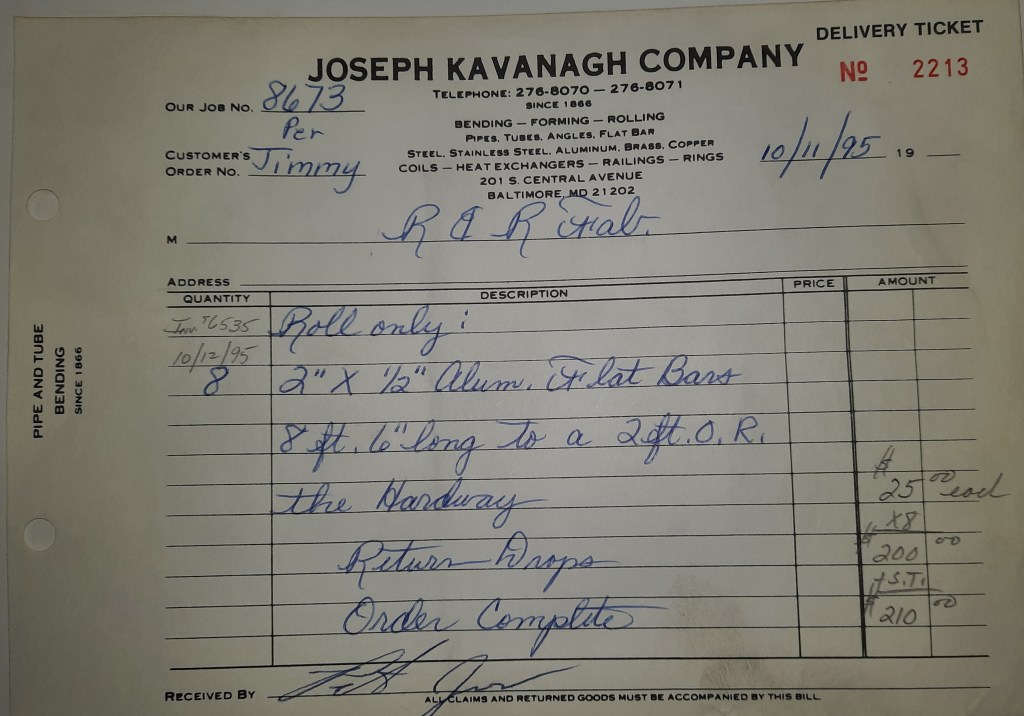 DELIVERY TICKET
JOSEPH KAVANAGH COMPANY
Nº 2213
TELEPHONE: 276-8070 — 276-8071
SINCE 1866
OUR JOB NO. 8673
BENDING — FORMING — ROLLING
Per
PIPES, TUBES, ANGLES, FLAT BAR
STEEL, STAINLESS STEEL, ALUMINUM, BRASS, COPPER
CUSTOMER'S
ORDER NO. Jimmy
COILS — HEAT EXCHANGERS — RAILINGS — RINGS
10/11/95 19
201 S. CENTRAL AVENUE
BALTIMORE, MD 21202
M R & R Fab.
ADDRESS
QUANTITY DESCRIPTION PRICE AMOUNT
Inv # 6535 Roll only:
10/12/95
8 2" X 1/2" Alum. Flat Bars
8 ft. 6" long to a 2 ft. O.R.
$
25 00 each
the Hardway
X8
$ 200 00
Return Drops
+ S.T.
$ 210 00
Order Complete
RECEIVED BY
ALL CLAIMS AND RETURNED GOODS MUST BE ACCOMPANIED BY THIS BILL
PIPE AND TUBE
BENDING
SINCE 1866